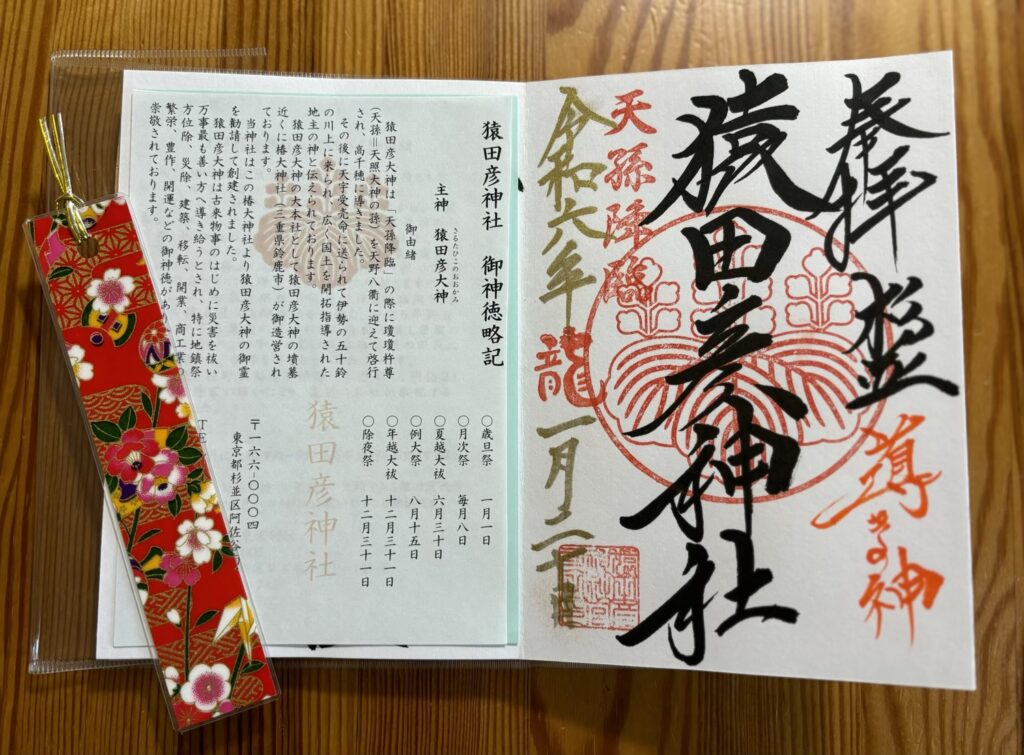 奉拝 杉並
導きの神
猿田彦神社
天孫降臨
令和六年 龍 一月二十
猿田彦神社　御神徳略記
主神　猿田彦大神
さるたひこのおおかみ
御由緒
猿田彦大神は「天孫降臨」の際に瓊瓊杵尊
(天孫=天照大神の孫)を天野八衢に迎えて啓行
され、高千穂に導きました。
その後に天宇受売命に送られて伊勢の五十鈴
の川上に来られ、広く国土を開拓指導された
地主の神と伝えられております。
猿田彦大神の大本社として猿田彦大神の墳墓
近くに椿大神社(三重県鈴鹿市)が御造営され
ております。
当神社はこの椿大神社より猿田彦大神の御霊
を勧請して創建されました。
猿田彦大神は古来物事のはじめに災害を祓い
万事最も善い方へ導き給うとされ、特に地鎮祭
方位除、災除、建築、移転、開業、商工業の
繁栄、豊作、開運などの御神徳があり
崇敬されております。
○歳旦祭　一月一日
○月次祭　毎月八日
○夏越大祓　六月三十日
○例大祭　八月十五日
○年越大祓　十二月三十一日
○除夜祭　十二月三十一日
猿田彦神社
〒一六六-〇〇〇四
東京都杉並区阿佐谷
TE